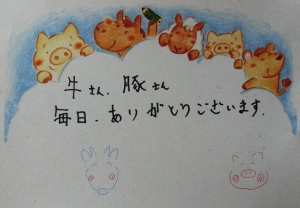 牛さん、豚さん
毎日、ありがとうございます。